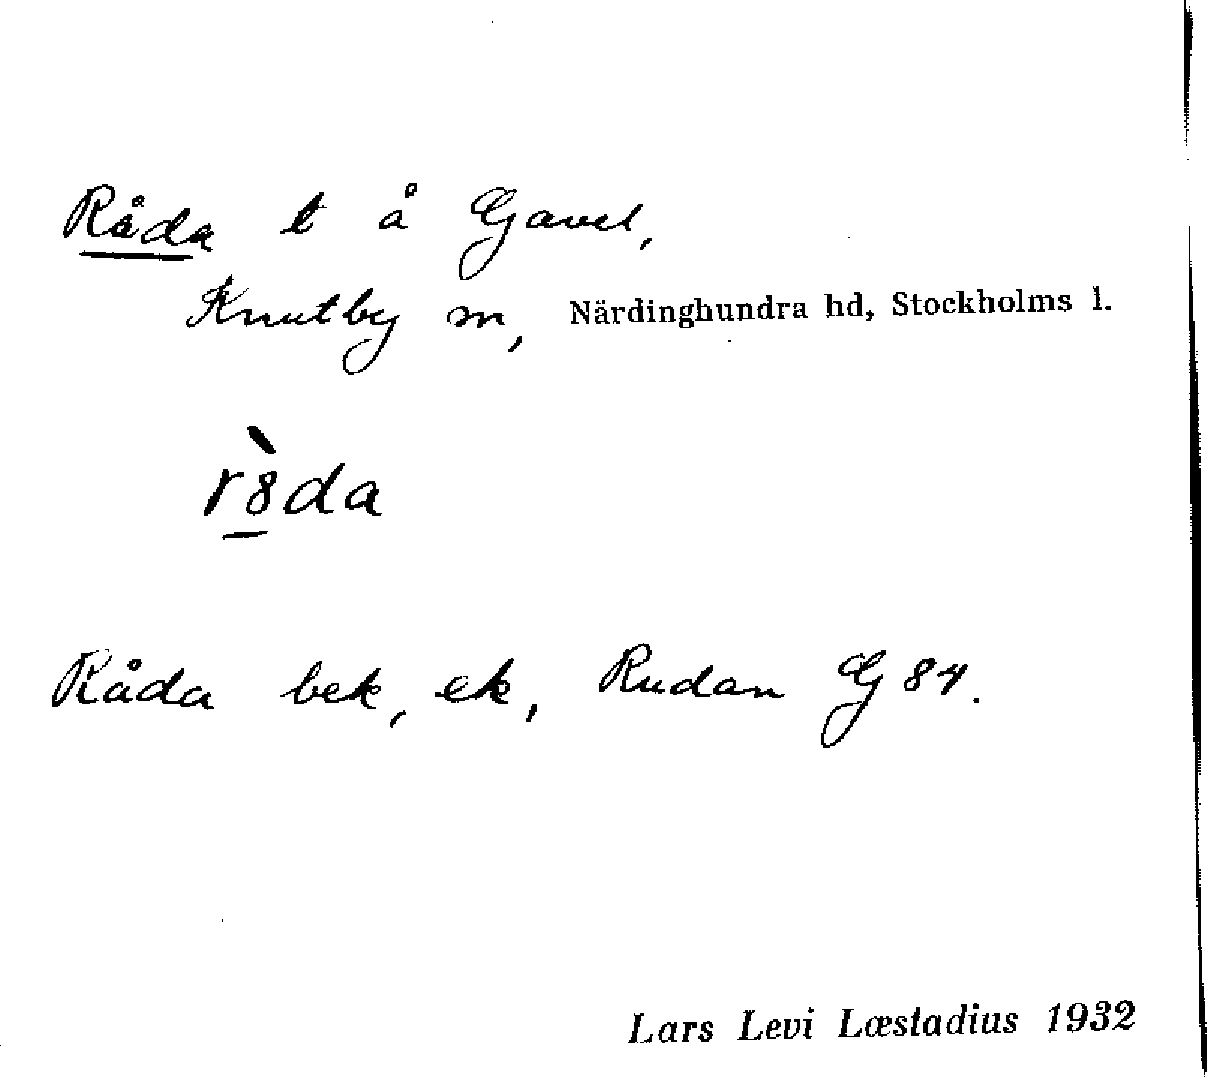 Råda t å Gavel,
Knutby sn, Närdinghundra hd, Stockholms l.
rò̱da
Råda bek, ek, Rudan G 84.
Lars Levi Læstadius 1932